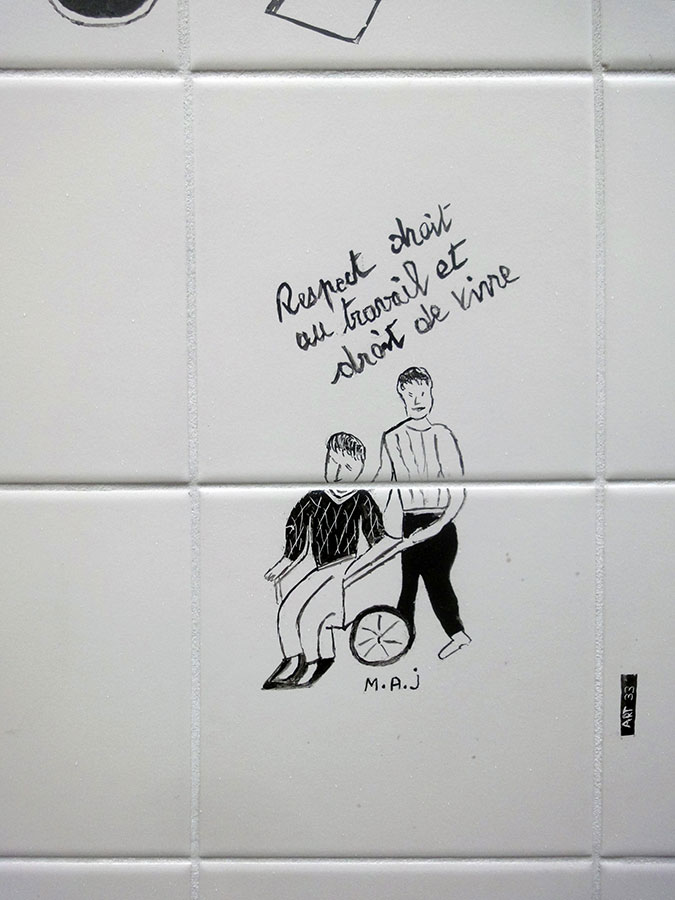 Respect droit
au travail et
droit de vivre
M.A.j
ART 33